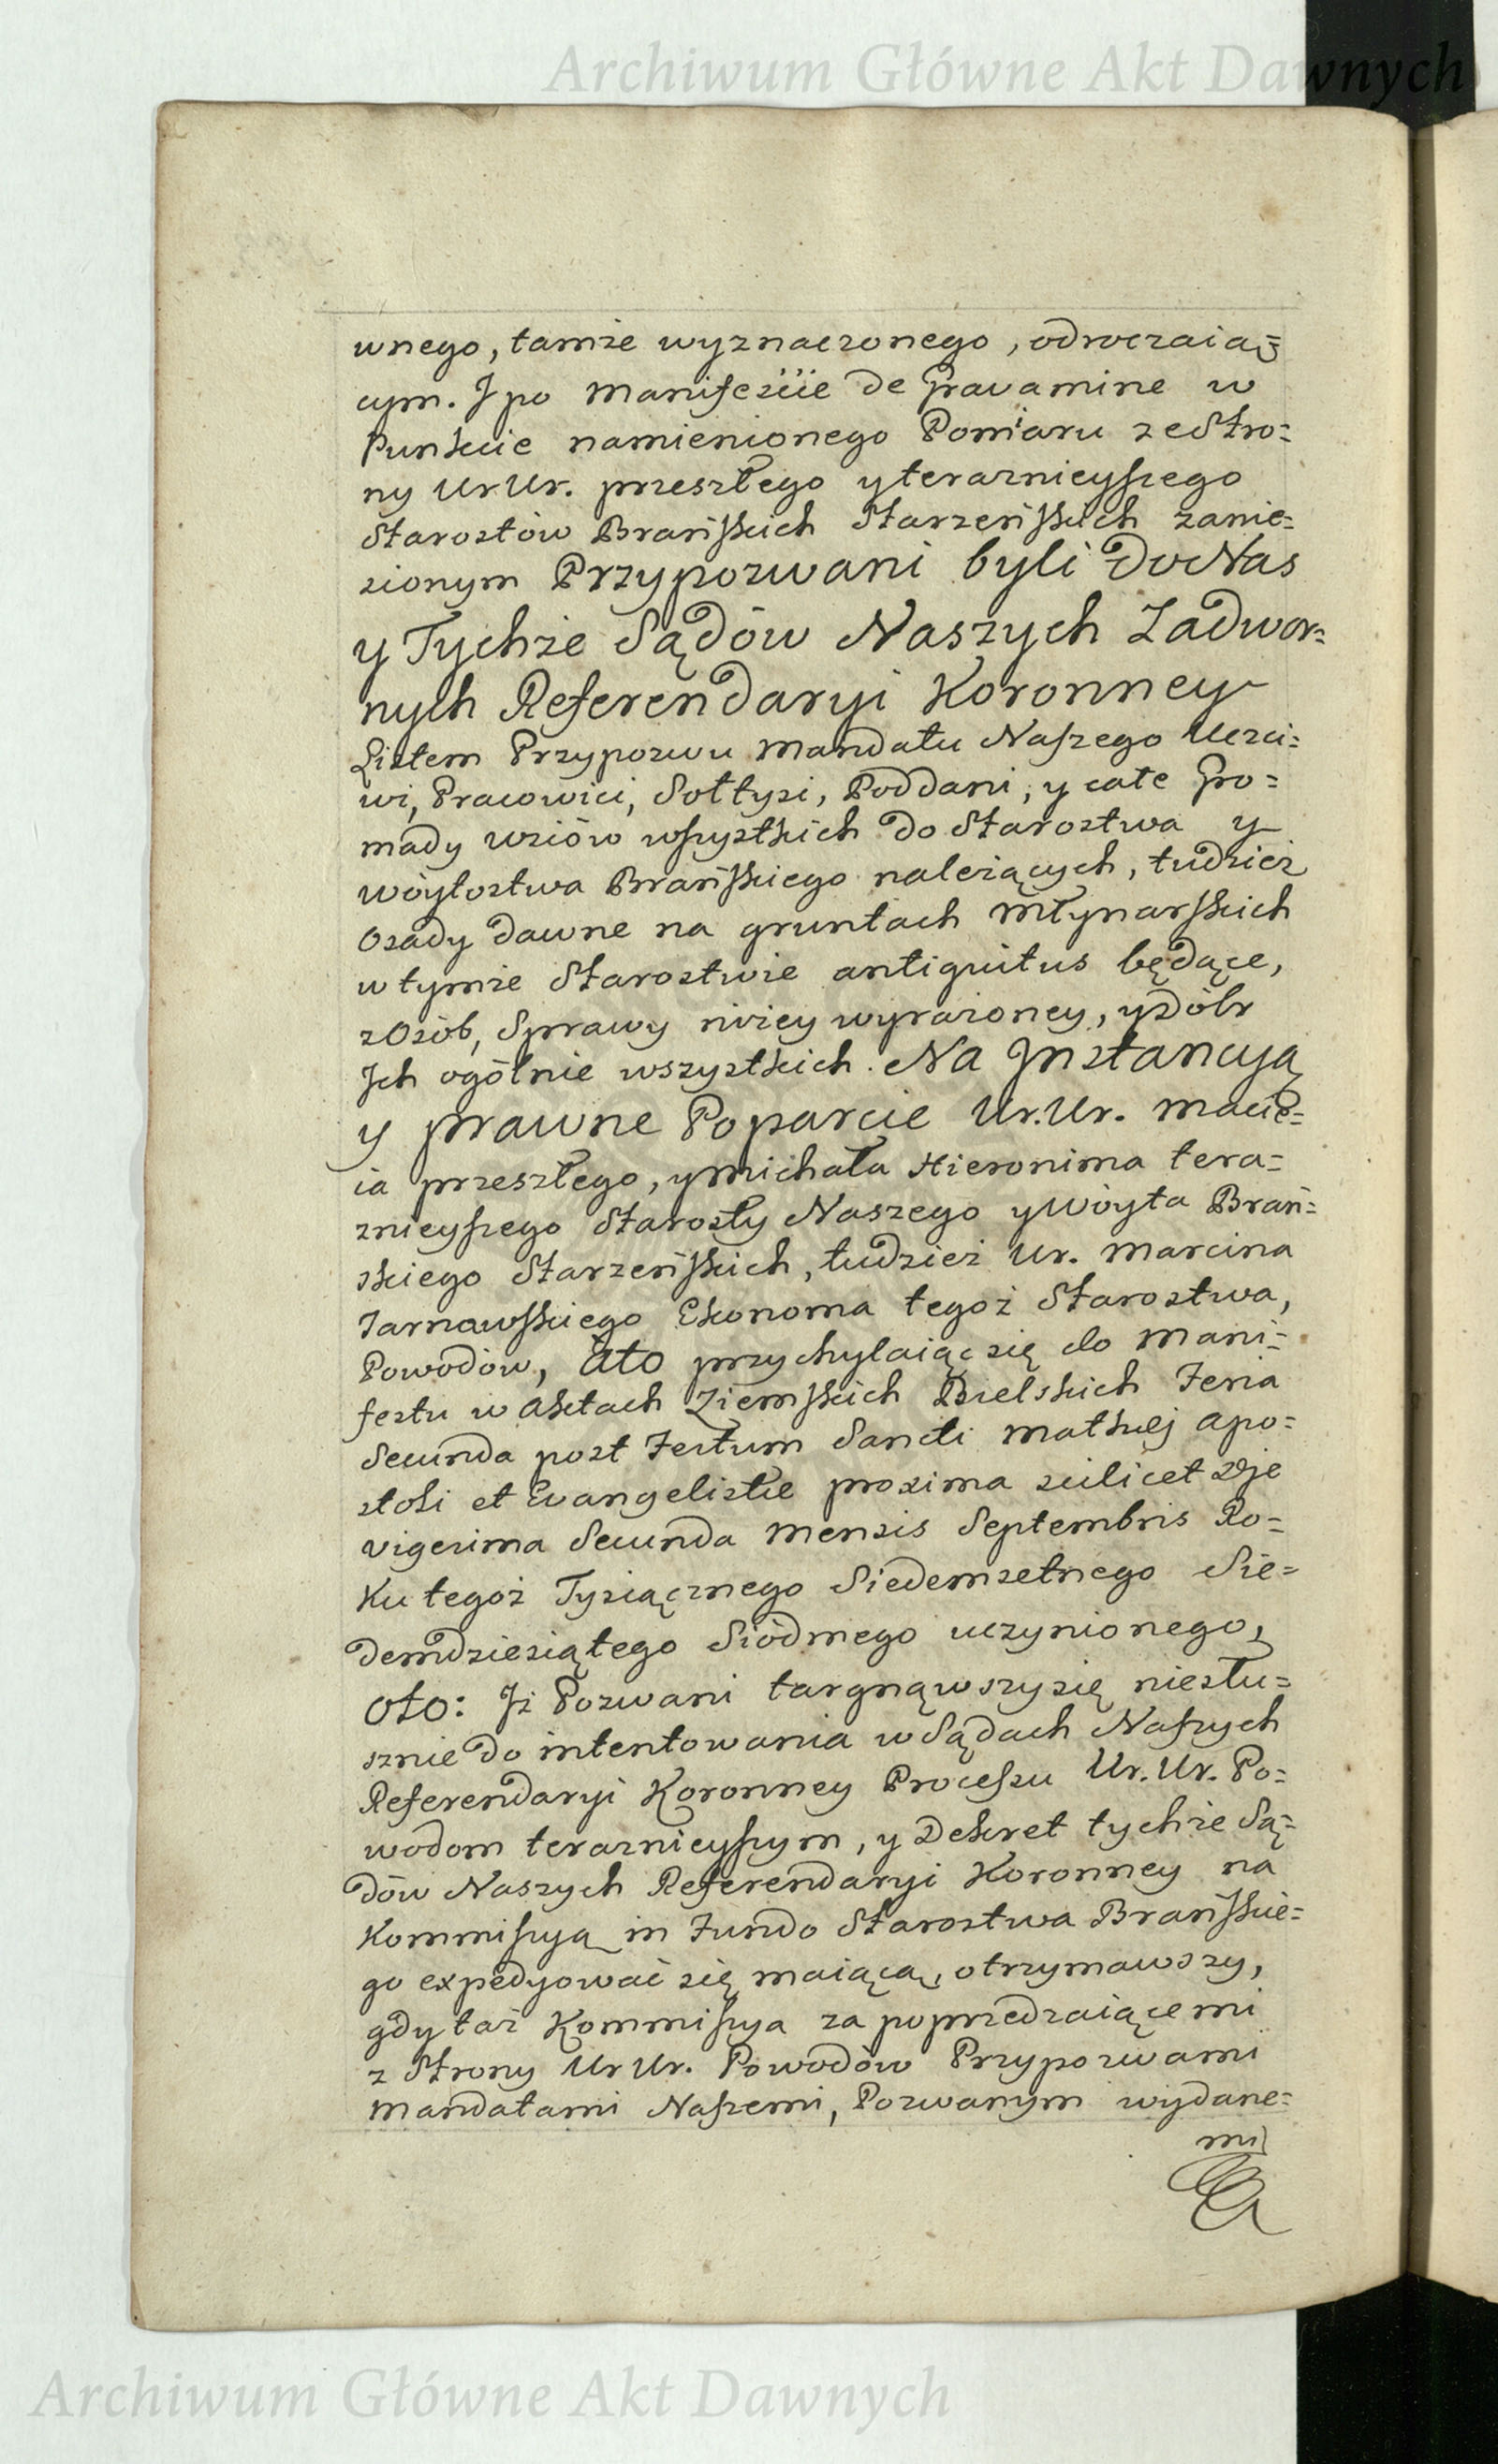 Archiwum Główne Akt Dawnych
wnego, tamże wyznaczonego, odroczaią=
cym. I po Manifeście de Gravamine w
Punkcie namienionego Pomiaru ze Stro=
ny Ur Ur. przeszłego y teraznieyszego
Starostów Brańskich Starzeńskich zanie=
sionym Przypozwani byli do Nas
y Tychże Sądów Naszych Zadwor=
nych Referendaryi Koronney
Listem Przypozwu Mandatu Naszego Uczci=
wi, Pracowici, Sołtysi, Poddani, y całe Gro=
mady wsiów wszystkich do Starostwa y
Wóytostwa Brańskiego należących, tudzież
Osady dawne na gruntach Młynarskich
w tymże Starostwie antiquitus będące,
z Osób, Sprawy niżey wyrażoney, y Dóbr
Ich ogólnie wszystkich. Na Instancyą
y prawne Poparcie Ur. Ur. Macie=
ia przeszłego, y Michała Hieronima tera=
znieyszego Starosty Naszego y Wóyta Brań=
skiego Starzeńskich, tudzież Ur. Marcina
Tarnawskiego Ekonoma tegoż Starostwa,
Powodów, Ato przychylaiąc się do Mani=
festu w Aktach Ziemskich Bielskich Feria
Secunda post Festum Sancti Mathæj Apo=
stoli et Evangelistæ proxima scilicet Dje
vigesima Secunda Mensis Septembris Ro=
Ku tegoż Tysiącznego Siedemsetnego Sie=
demdziesiątego Siódmego uczynionego,
Oto: Iż Pozwani targnąwszy się niesłu=
sznie do intentowania w Sądach Naszych
Referendaryi Koronney Processu Ur. Ur. Po=
wodom teraznieyszym, y Dekret tychże Są=
dów Naszych Referendaryi Koronney na
Kommissyą in Fundo Starostwa Brańskie=
go expedyować się maiącą, otrzymawszy,
gdy taż Kommissya za poprzedzaiącemi
z Strony Ur Ur. Powodów Przypozwami
Mandatami Naszemi, Pozwanym wydane=
mi
Archiwum Główne Akt Dawnych